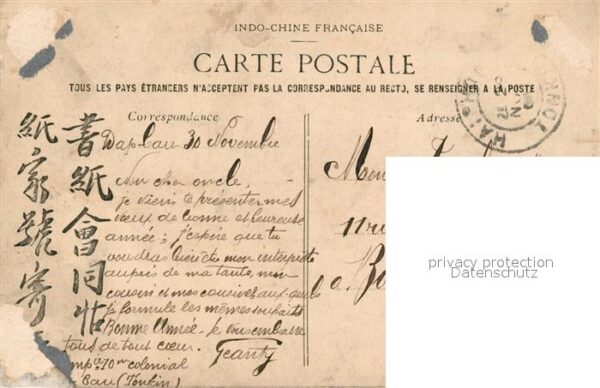 INDO-CHINE FRANÇAISE
CARTE POSTALE
TOUS LES PAYS ÉTRANGERS N'ACCEPTENT PAS LA CORRESPONDANCE AU RECTO, SE RENSEIGNER A LA POSTE
Correspondance
Adresse
30 Novembre
Mon cher oncle,
je viens te présenter mes
vœux de bonne et heureuse
année; j'espère que tu
voudras être mon interprète
auprès de ma tante, mon
cousin et mes cousines auxquels
je formule les mêmes souhaits
Bonne Année. Je vous embrasse
tous de tout cœur.
colonial
(Tonkin)
書紙會同帖
紙家號寄
privacy protection
Datenschutz